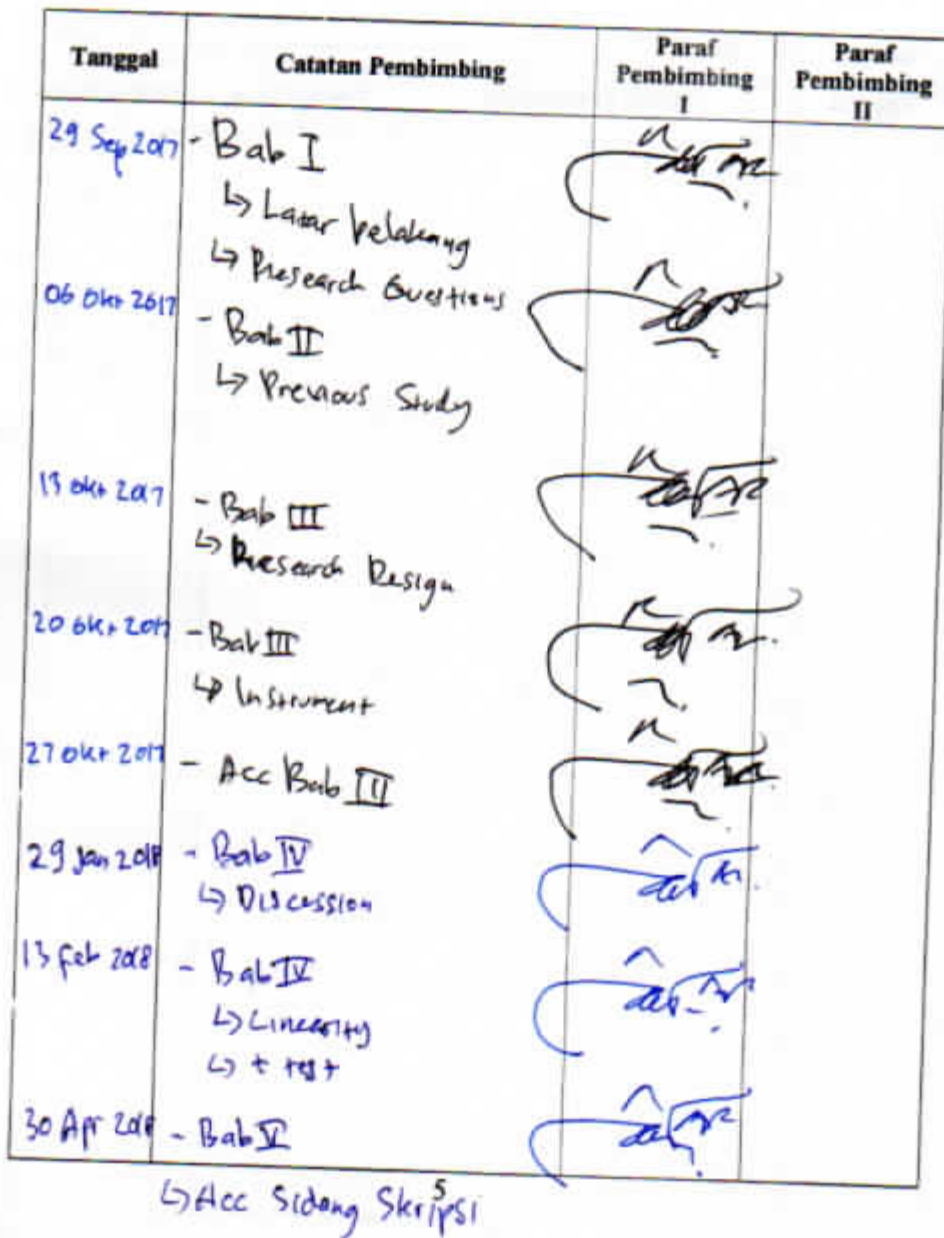 Tanggal
Catatan Pembimbing
Paraf
Pembimbing
I
Paraf
Pembimbing
II
29 Sep 2017 - Bab I
↳ Latar belakang
↳ Research Questions
06 Okt 2017 - Bab II
↳ Previous Study
13 Okt 2017 - Bab III
↳ Research Design
20 Okt 2017 - Bab III
↳ Instrument
27 Okt 2017 - Acc Bab III
29 Jan 2018 - Bab IV
↳ Discession
13 Feb 2018 - Bab IV
↳ Linearity
↳ t test
30 Apr 2018 - Bab V
5
↳ Acc Sidang Skripsi